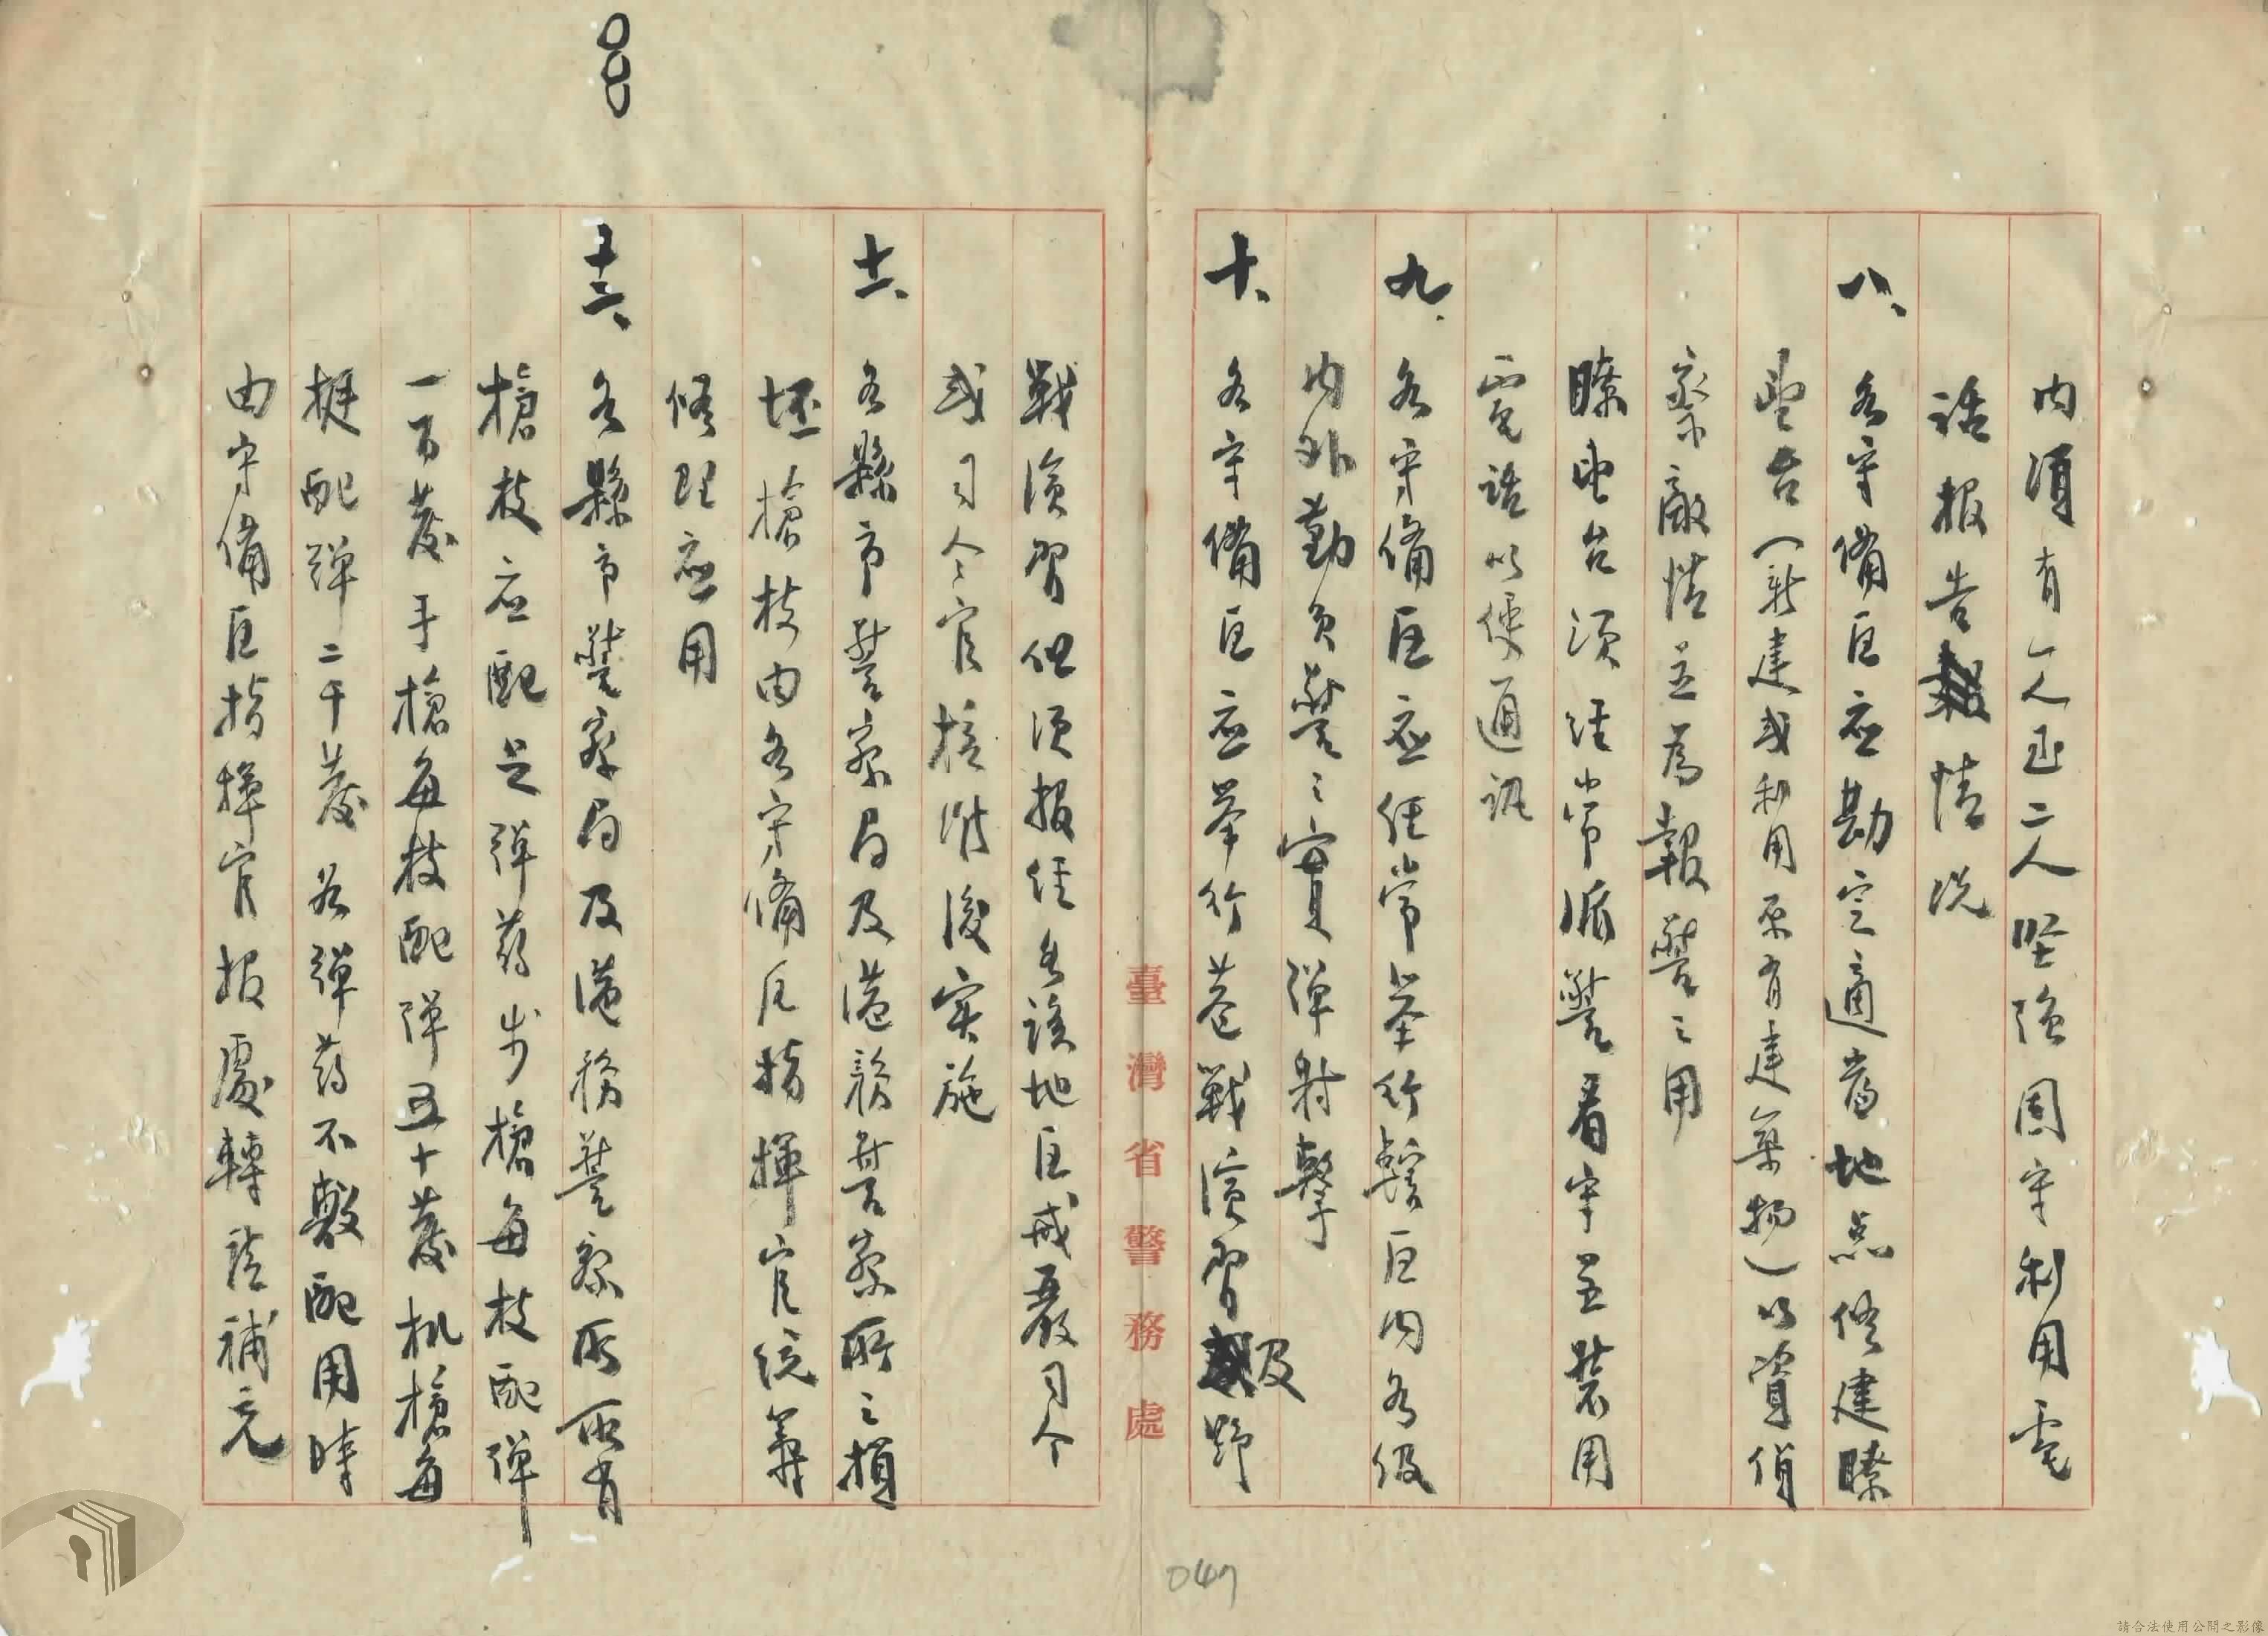 內須有一人至二人堅強固守利用電
話报告情况
八、各守備区应勘定適当地点修建瞭
望台(新建或利用原有建築物)以資偵
察敵情並為報警之用
瞭望台須経常派警看守並裝用
電話以便通訊
九、各守備区应経常舉行轄区内各級
内外勤負警之實彈射擊
十、各守備区应舉行巷戰演習及野
戰演習但須报経各該地区戒嚴司令
或司令官核准後実施
十一、各縣市警察局及港務警察所之損
壞槍枝由各守備区指揮官统籌
修理应用
十二、各縣市警察局及港務警察所所有
槍枝应配足彈药步槍每枝配彈
一百發手槍每枝配弹五十發机槍每
挺配彈二千發若彈药不敷配用時
由守備区指揮官报處轉請補充
臺灣省警務處
047
請合法使用公開之影像